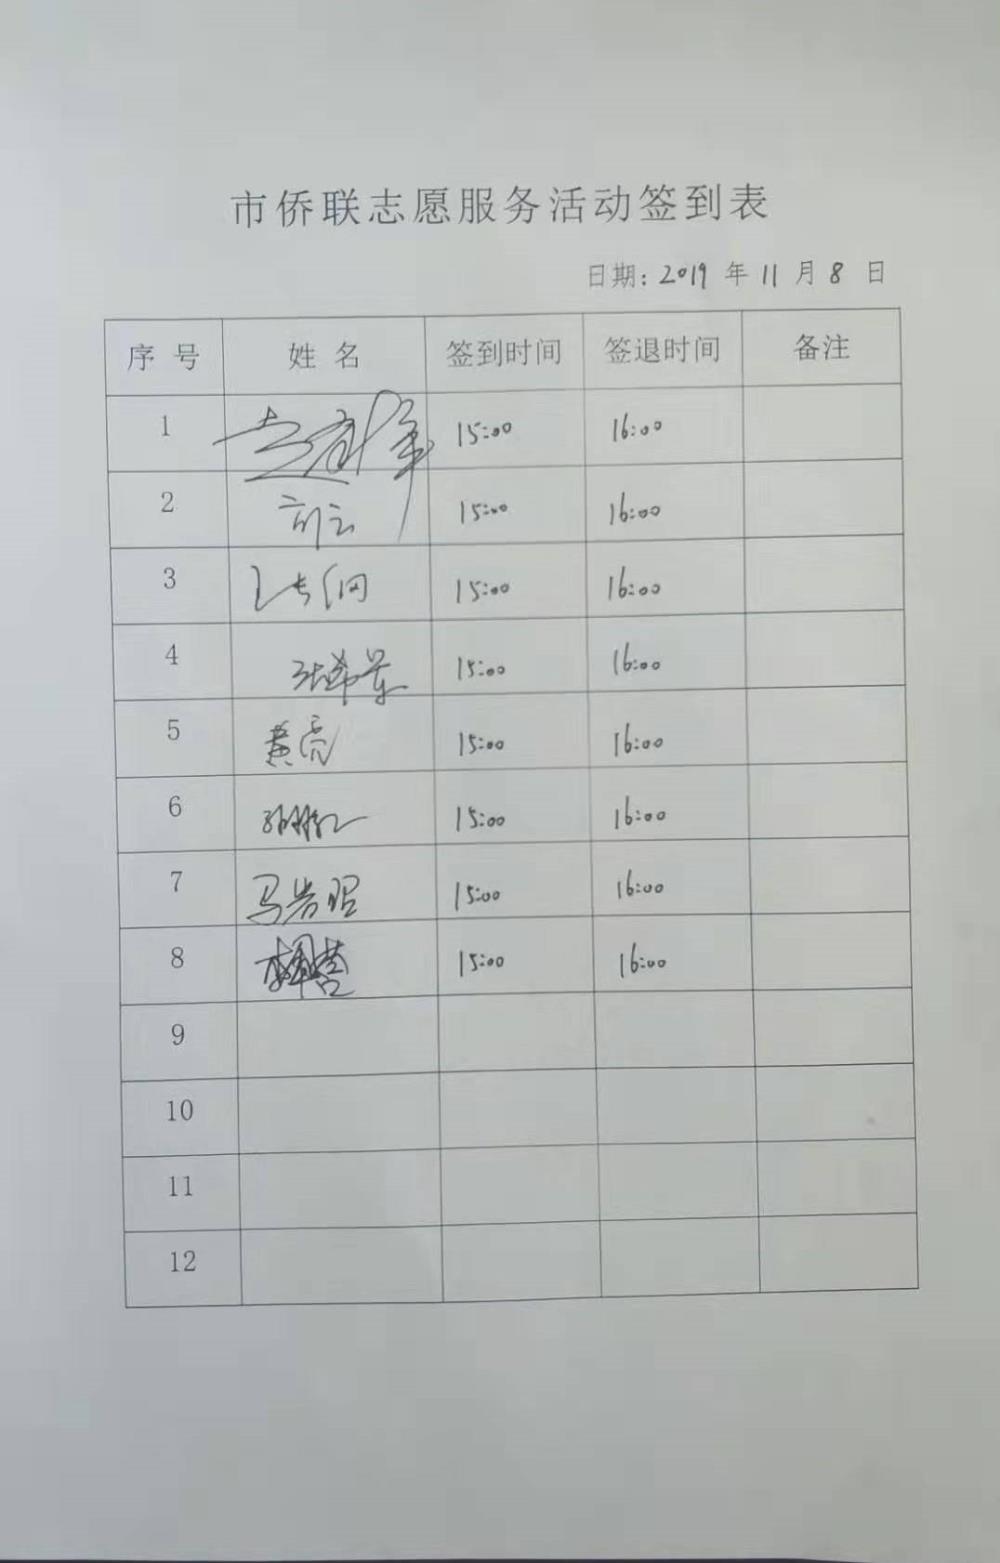 市侨联志愿服务活动签到表
日期: 2019 年 11 月 8 日
序号 姓名 签到时间 签退时间 备注
1 15:00 16:00
2 15:00 16:00
3 15:00 16:00
4 15:00 16:00
5 黄亮 15:00 16:00
6 15:00 16:00
7 马岩昭 15:00 16:00
8 15:00 16:00
9
10
11
12